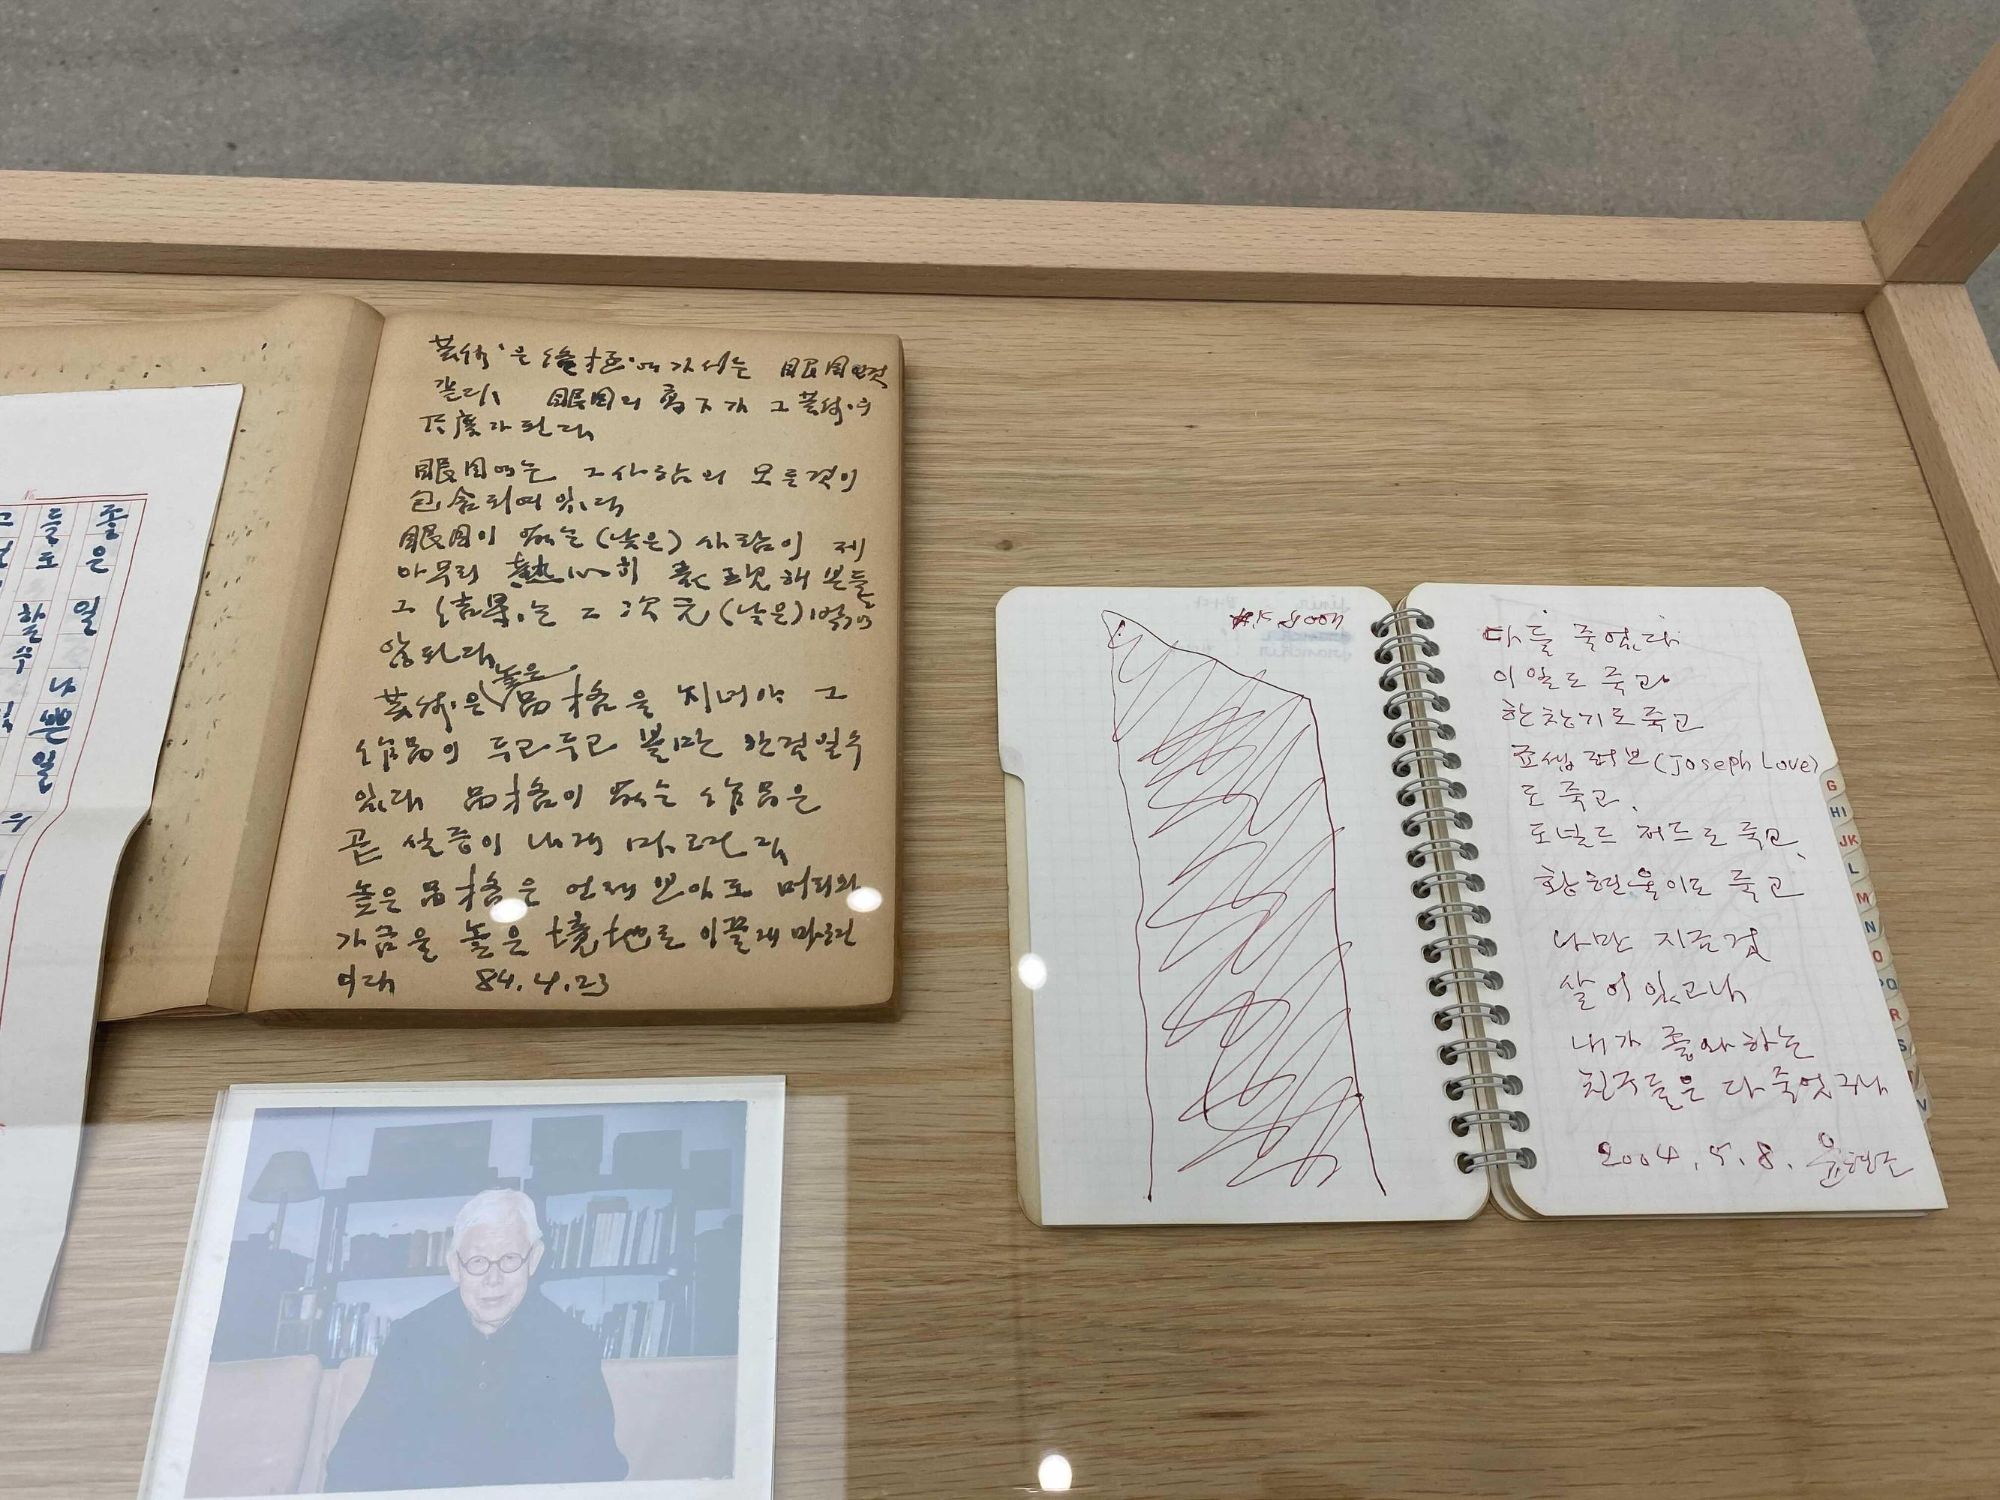 좋은 일
들도 나쁜일
할수
芸術은 終極에 가서는 眼目인것
같다. 眼目의 高下가 그 芸術의
尺度가 된다
眼目에는 그 사람의 모든것이
包含되여 있다
眼目이 없는 (낮은) 사람이 제
아무리 熱心히 表現해 본들
그 結果는 二次元(낮은)
않된다
芸術은 높은 品格을 지녀야 그
作品이 두고두고 볼만 한것일수
있다 品格이 없는 作品은
곧 실증이 나게 마련다
높은 品格은 언제 보아도 머리와
가슴을 높은 境地로 이끌게 마련
이다 84.4.23
다들 죽었다
이일도 죽고
한창기도 죽고
죠셉 러브 (Joseph Love)
도 죽고,
도널드 저드도 죽고,
황현욱이도 죽고
나만 지금껏
살어 있고나
내가 좋와하는
친구들은 다 죽었구나
2004.5.8. 윤형근
G
HI
JK
L
M
N
O
PQ
R
S
T
V